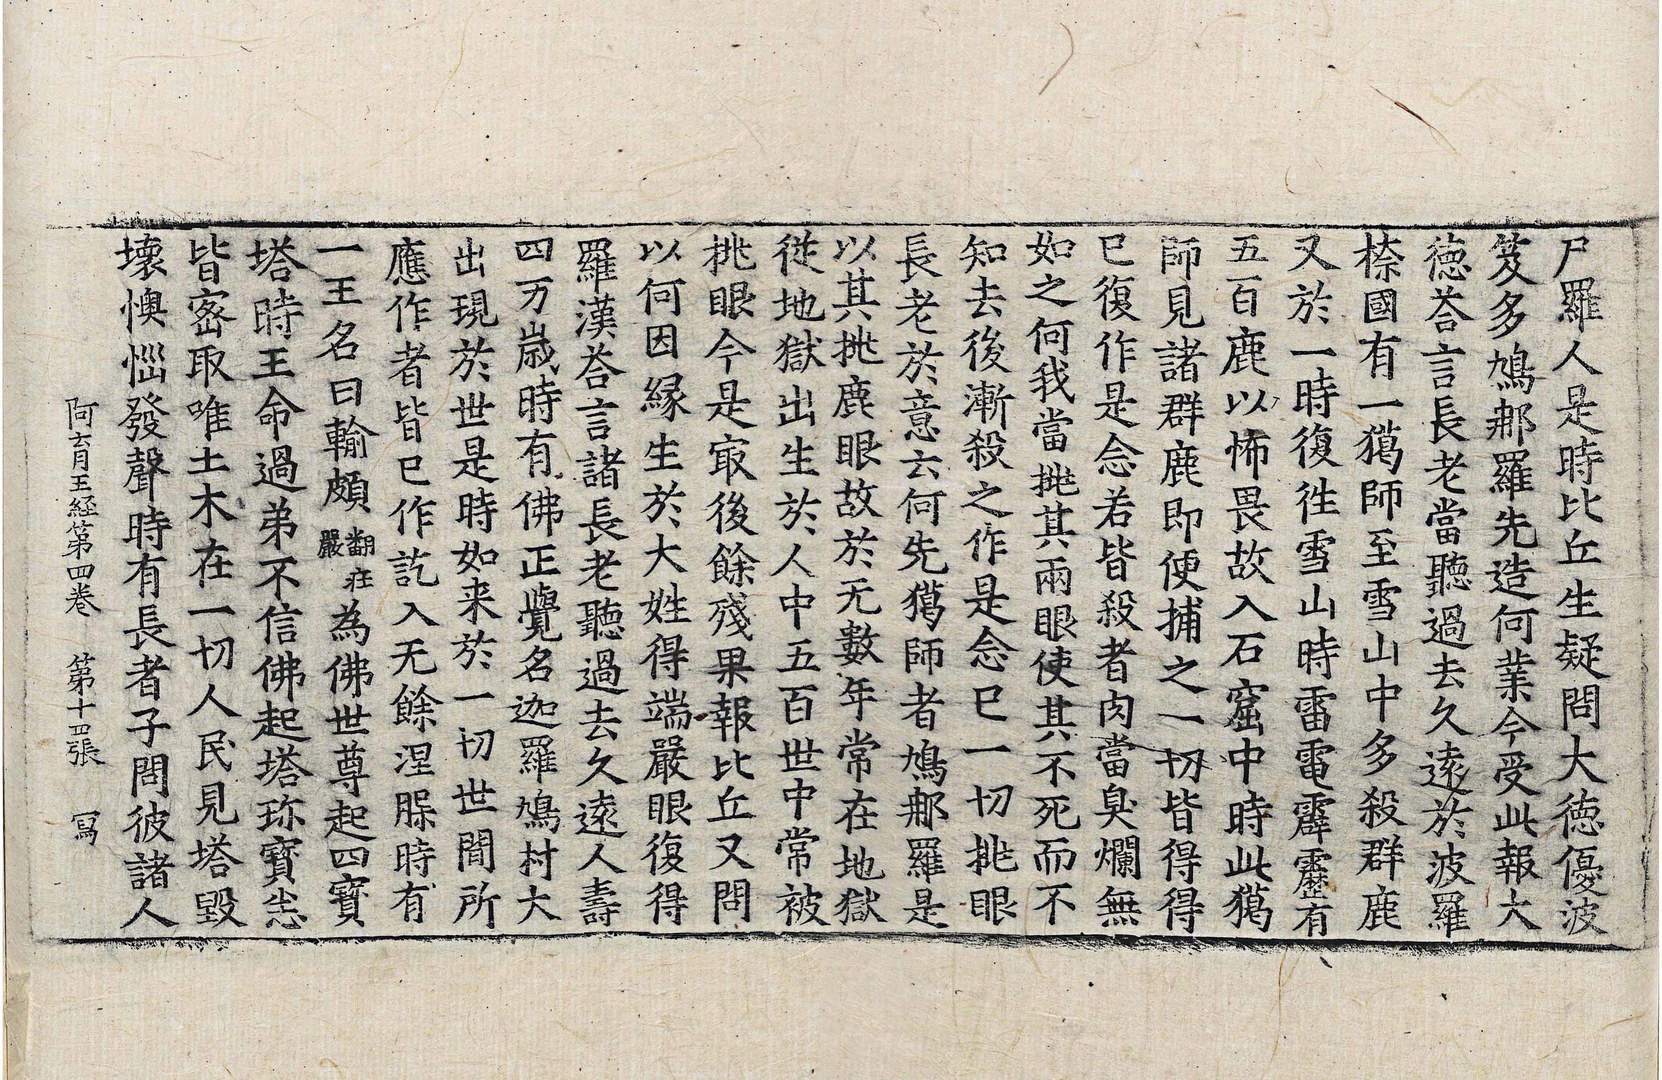 尸羅人是時比丘生疑問大徳優波
笈多鳩郍羅先造何業今受此報大
徳荅言長老當聽過去久遠於波羅
㮈國有一獦師至雪山中多殺群鹿
又於一時復徃雪山時雷電霹靂有
五百鹿以怖畏故入石窟中時此獦
師見諸群鹿即便捕之一切皆得得
已復作是念若皆殺者肉當臭爛無
如之何我當挑其兩眼使其不死而不
知去後漸殺之作是念已一切挑眼
長老於意云何先獦師者鳩郍羅是
以其挑鹿眼故於无數年常在地獄
従地獄出生於人中五百世中常被
挑眼今是㝡後餘殘果報比丘又問
以何因緣生於大姓得端嚴眼復得
羅漢荅言諸長老聽過去久遠人壽
四万歲時有佛正覺名迦羅鳩村大
出現於世是時如来於一切世間所
應作者皆已作訖入无餘涅槃時有
一王名曰輸頗翻莊嚴為佛世尊起四寶
塔時王命過弟不信佛起塔珎寶悉
皆密取唯土木在一切人民見塔毀
壞懊惱發聲時有長者子問彼諸人
阿育王経第四卷 第十四張 寫